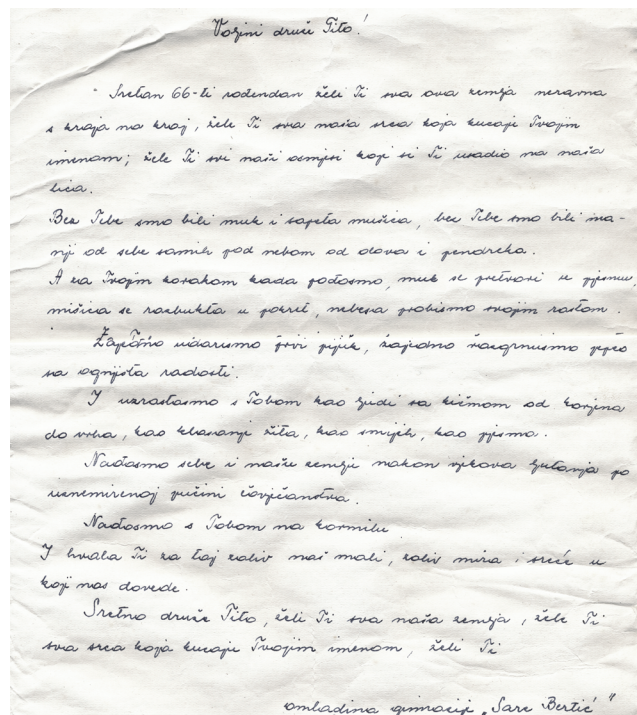 Voljeni druže Tito!
Sretan 66-ti rođendan želi Ti sva ova zemlja neravna
s kraja na kraj, žele Ti sva naša srca koja kucaju Tvojim
imenom; žele Ti svi naši osmjesi koji si Ti usadio na naša
lica.
Bez Tebe smo bili muk i sapeta mišica, bez Tebe smo bili ma-
nji od sebe samih pod nebom od olova i pendreka.
A za Tvojim korakom kada pođosmo, muk se pretvori u pjesmu,
mišica se razbukta u pokret, nebesa probismo svojim rastom.
Zajedno udarismo prvi pijuk, zajedno razgrnusmo
sa ognjišta radosti.
I uzrastasmo s Tobom kao ljudi sa kičmom od korjena
do vrha, kao klasanje žita, kao smijeh, kao pjesma.
Nađosmo sebe i našu zemlju nakon vjekova lutanja po
uznemirenoj pučini čovječanstva.
Nađosmo s Tobom na kormilu.
I hvala Ti za taj zaliv naš mali, zaliv mira i sreće u
koji nas dovede.
Sretno druže Tito, želi Ti sva naša zemlja, žele Ti
sva srca koja kucaju Tvojim imenom, želi Ti
omladina gimnazije „Sare Bertić"